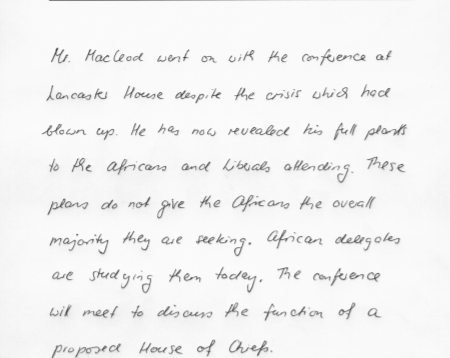 Mr. Macleod went on with the conference at
Lancaster House despite the crisis which had
blown up. He has now revealed his full plans
to the Africans and Liberals attending. These
plans do not give the Africans the overall
majority they are seeking. African delegates
are studying them today. The conference
will meet to discuss the function of a
proposed House of Chiefs.